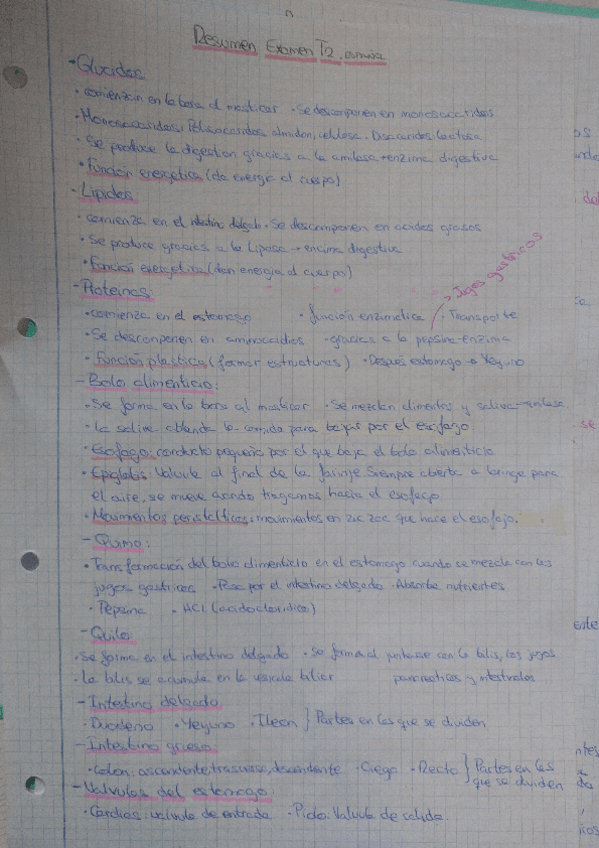 Resumen Examen T2
- Glucidos:
· comienzan en la boca al masticar · Se descomponen en monosacaridos
· Monosacaridos: Polisacaridos, almidon, celulosa. Disacaridos: lactosa
· Se produce la digestion gracias a la amilasa → enzima digestiva
· Función energetica (da energia al cuerpo)
- Lipidos:
· comienza en el intestino delgado · Se descomponen en acidos grasos
· Se produce gracias a la Lipasa → encima digestiva
· Función energetica (dan energia al cuerpo)
→ Jugos gastricos
- Proteinas:
· comienza en el estomago · función enzimatica / Transporte
· Se descomponen en aminoacidios · gracias a la pepsina-enzima
· Función plastica (formar estructuras) · Despues estomago → Yeyuno
- Bolo alimenticio:
· Se forma en la boca al masticar · Se mezclan alimentos y saliva-amilasa
· La saliva ablanda la comida para bajar por el esofago
· Esofago: conducto pequeño por el que baja el bolo alimenticio
· Epiglotis: Valvula al final de la faringe siempre abierta a laringe para
el aire, se mueve cuando tragamos hacia el esofago
· Movimientos peristalticos: movimientos en zic zac que hace el esofago.
- Quimo:
· Transformación del bolo alimenticio en el estomago cuando se mezcla con los
jugos gastricos · Pasa por el intestino delgado · Absorbe nutrientes
· Pepsina · HCl (acido cloridrico)
- Quilo:
· Se forma en el intestino delgado · Se forma al juntarse con la bilis, los jugos
· La bilis se acumula en la vesicula biliar pancreaticos y intestinales
- Intestino delgado
· Duodeno · Yeyuno · Ileon } Partes en las que se dividen
- Intestino grueso
· Colon: ascendente, trasverso, descendente · Ciego · Recto } Partes en las
que se dividen
- Valvulas del estomago:
· Cardias: valvula de entrada · Piloro: Valvula de salida